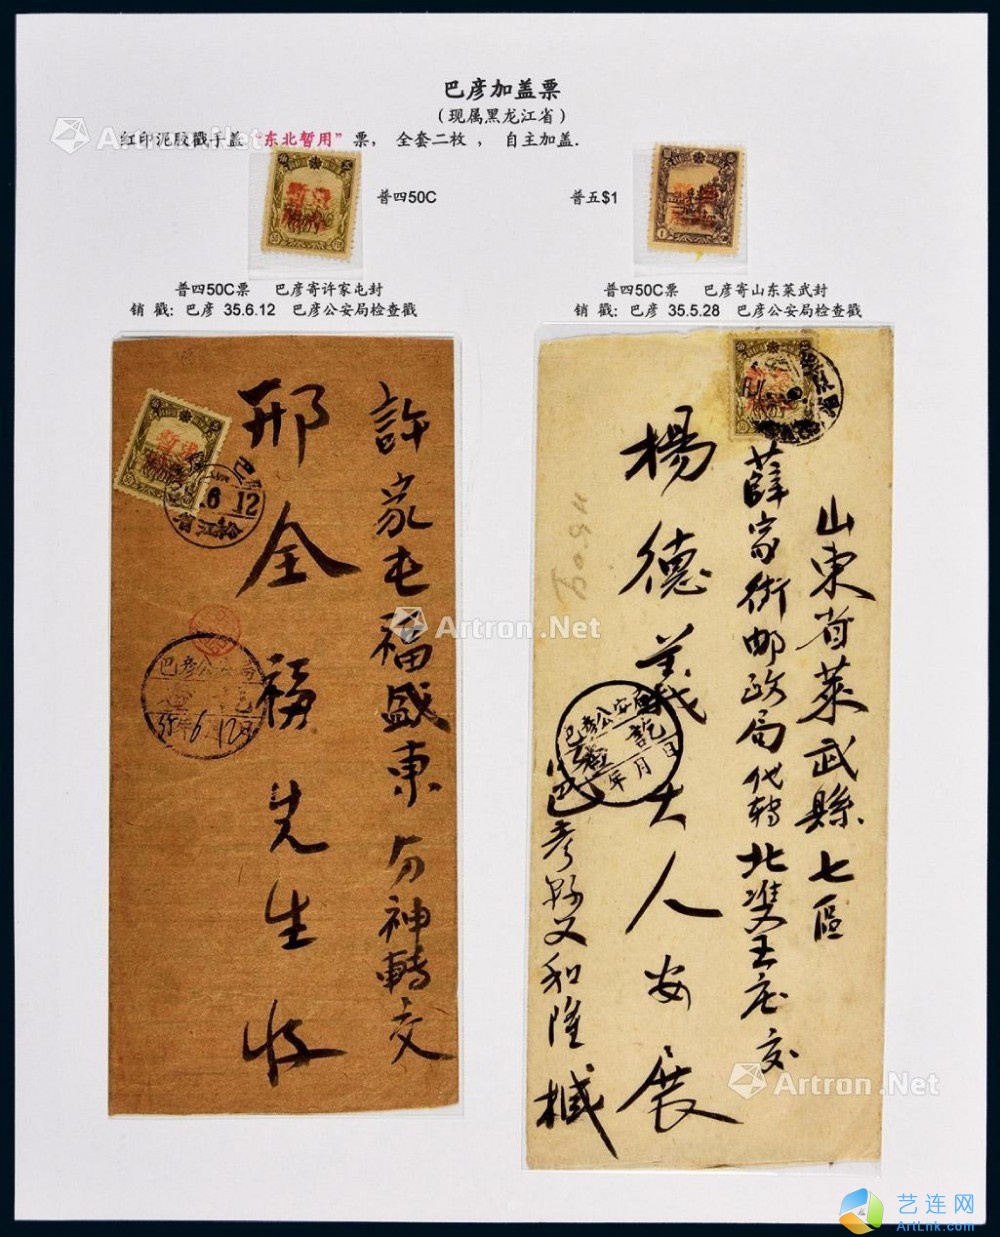 巴彦加盖票
（现属黑龙江省）
红印泥胶戳手盖 “东北暂用” 票， 全套二枚 ， 自主加盖.
普四50C
普五$1
普四50C票 巴彦寄许家屯封
销 戳: 巴彦 35.6.12 巴彦公安局检查戳
普四50C票 巴彦寄山东莱武封
销 戳: 巴彦 35.5.28 巴彦公安局检查戳
許家屯福盛東 神轉交
邢全福先生收
6 12
松江省
巴彦公安局
35年6月12日
山東省萊武縣七區
薛家街邮政局代轉北雙王庄交
楊德義大人安展
巴彦縣义和隆緘
巴彦公安局
檢訖
年月日
Artron.Net
Artron.Net
Artron.Net
艺连网
ArtLnk.com